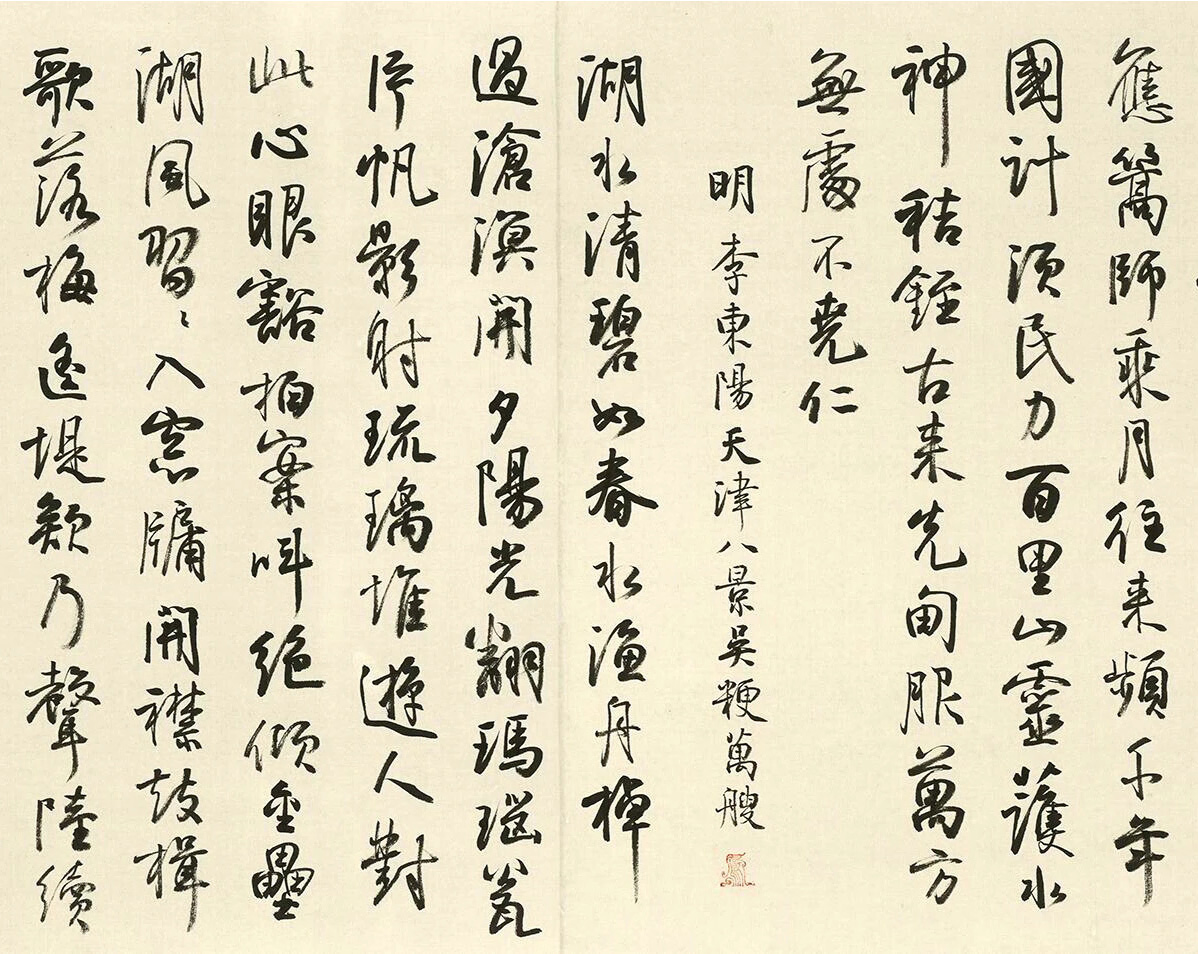 應篙師乘月往來頻千年
國計須民力百里山靈護水
神秸銍古來先甸服萬方
無處不堯仁
明李東陽天津八景吳粳萬艘
湖水清碧如春水漁舟棹
過滄溟開夕陽光翻瑪瑙瓮
片帆影射琉璃堆遊人對
此心眼豁拍案叫絕傾金罍
湖風習〻入窓牖開襟鼓楫
歌落梅遙堤欸乃聲陸續